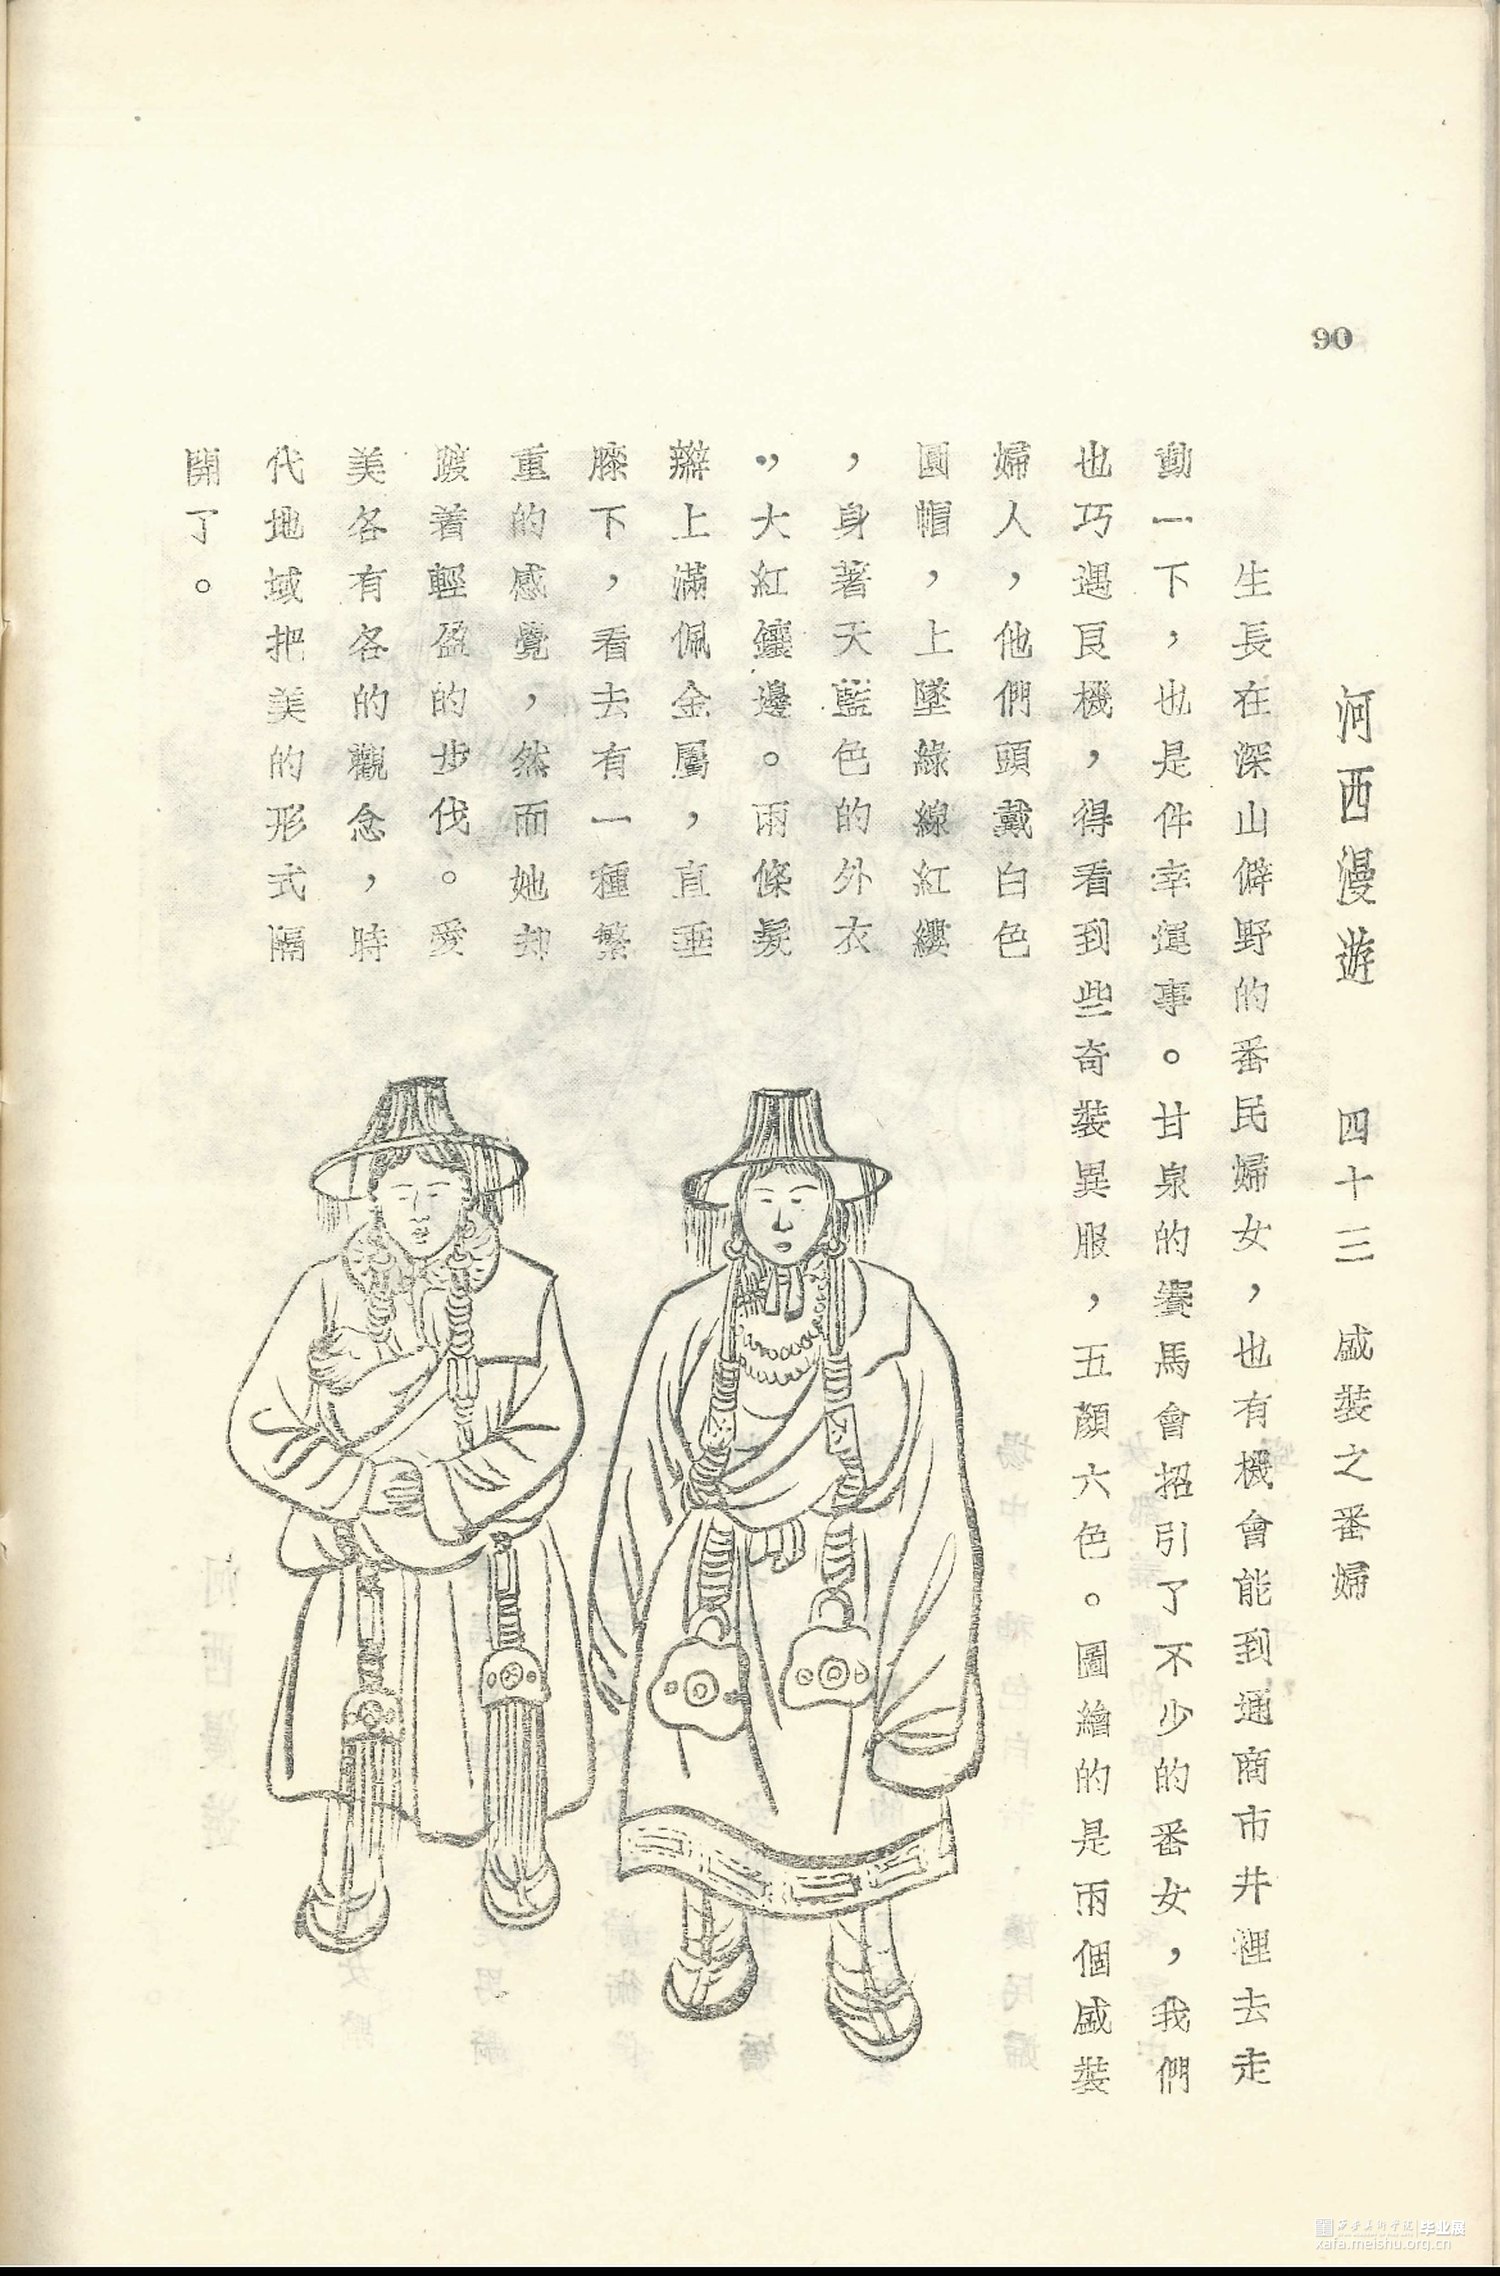 90
河西漫遊　四十三　盛裝之番婦
生長在深山僻野的番民婦女，也有機會能到通商市井裡去走
動一下，也是件幸運事。甘泉的賽馬會招引了不少的番女，我們
也巧遇良機，得看到些奇裝異服，五顏六色。圖繪的是兩個盛裝
婦人，他們頭戴白色
圓帽，上墜綠線紅纓
，身著天藍色的外衣
，大紅鑲邊。兩條髮
辮上滿佩金屬，直垂
膝下，看去有一種繁
重的感覺，然而她却
踱着輕盈的步伐。愛
美各有各的觀念，時
代地域把美的形式隔
開了。
西安美術學院 毕业展
xafa.meishu.org.cn